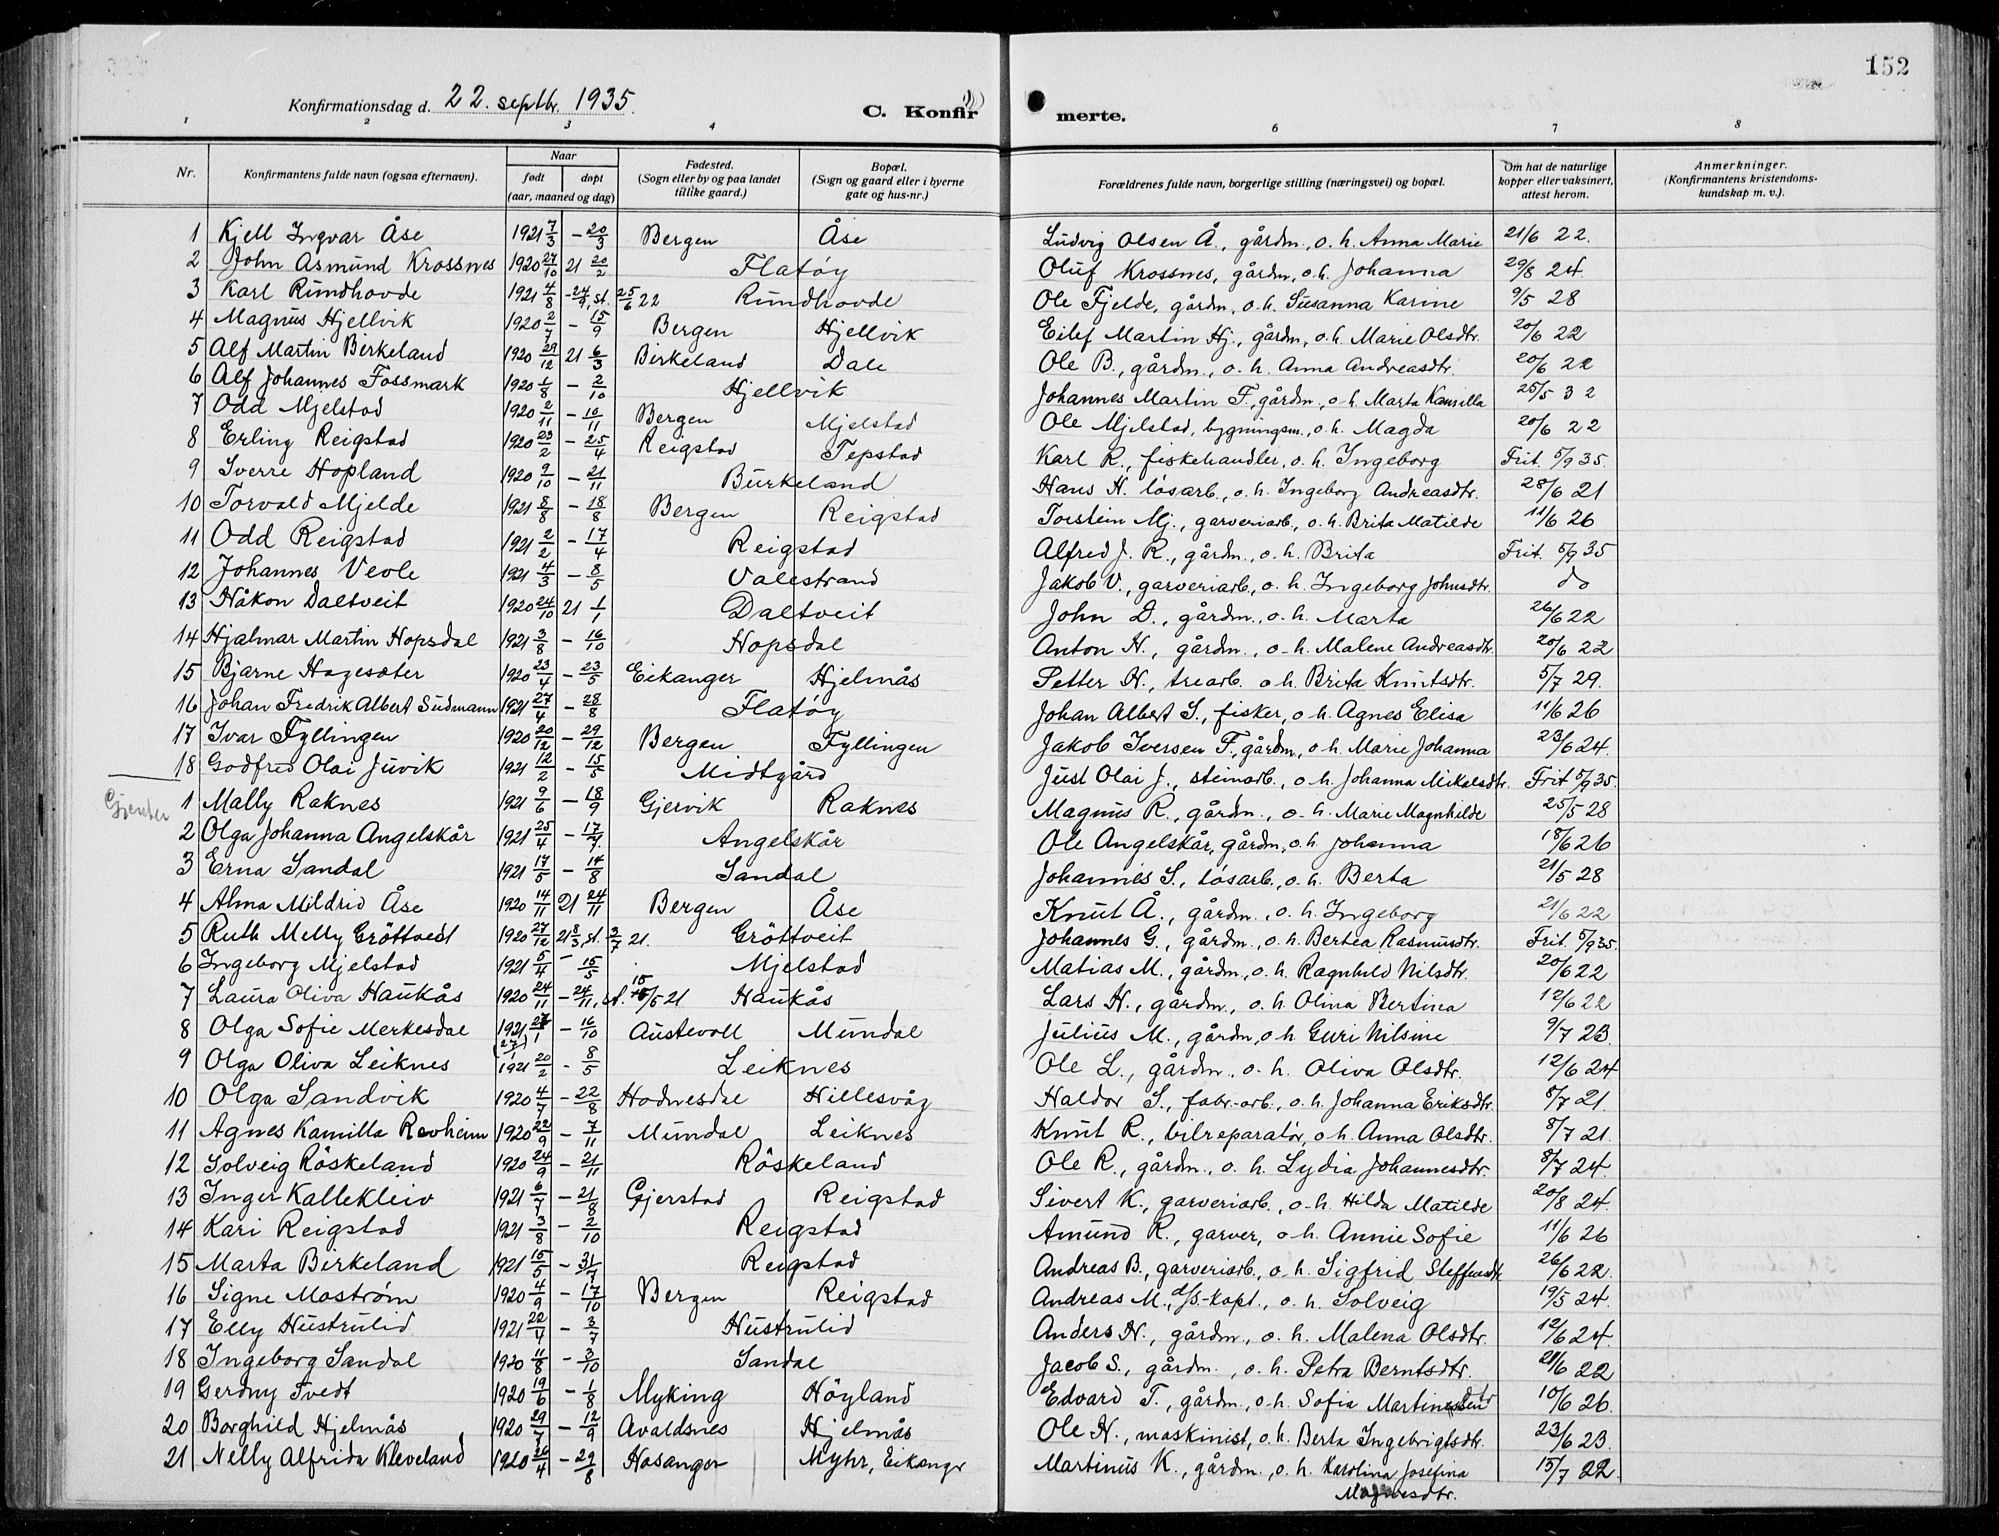 152
Konfirmationsdag d. 22. septbr. 1935.
C. Konfirmerte.
1 2 3 4 6 7 8
Nr. | Konfirmantens fulde navn (ogsaa efternavn). | Naar født | døpt (aar, maaned og dag) | Fødested. (Sogn eller by og paa landet tillike gaard.) | Bopæl. (Sogn og gaard eller i byerne gate og hus-nr.) | Forældrenes fulde navn, borgerlige stilling (næringsvei) og bopæl. | Om hat de naturlige kopper eller vaksinert, attest herom. | Anmerkninger. (Konfirmantens kristendomskundskap m. v.).
1 Kjell Ingvar Åse 1921 7/3 - 20/3 Bergen Åse Ludvig Olsen Å., gårdm., o. h. Anna Marie 21/6 22.
2 John Asmund Krossnes 1920 27/10 21 20/2 Flatøy Oluf Krossnes, gårdm, o.h. Johanna 29/8 24.
3 Karl Rundhovde 1921 4/8 - 24/9, st. 25/6 22 Rundhovde Ole Fjelde, gårdm, o. h. Susanna Karine 9/5 28
4 Magnus Hjellvik 1920 2/7 - 15/9 Bergen Hjellvik Eilef Martin Hj., gårdm, o.h. Marie Olsdtr. 20/6 22
5 Alf Martin Birkeland 1920 29/12 21 6/3 Birkeland Dale Ole B., gårdm., o. h. Anna Andreasdtr. 20/6 22
6 Alf Johannes Fossmark 1920 1/8 - 2/10 Hjellvik Johannes Martin F., gårdm., o.h. Marta Kamilla 25/5 32
7 Odd Mjelstad 1920 2/11 - 16/11 Bergen Mjelstad Ole Mjelstad, bygningsm., o.h. Magda 20/6 22
8 Erling Reigstad 1920 23/2 - 25/4 Reigstad Tepstad Karl R., fiskehandler, o. h. Ingeborg Frit. 5/9 35.
9 Sverre Hopland 1920 9/10 - 21/11 Burkeland Hans H. lösarb., o. h. Ingeborg Andreasdtr. 28/6 21
10 Torvald Mjelde 1921 8/8 - 18/8 Bergen Reigstad Torstein Mj., garveriarb., o. h. Brita Matilde 11/6 26
11 Odd Reigstad 1921 2/2 - 17/4 Reigstad Alfred J. R., gårdm., o. h. Brita Frit. 5/9 35
12 Johannes Veole 1921 4/3 - 8/5 Valestrand Jakob V., garveriarb., o. h. Ingeborg Johnsdtr. do
13 Håkon Daltveit 1920 24/10 21 1/1 Daltveit John D., gårdm., o. h. Marta 26/6 22
14 Hjalmar Martin Hopsdal 1921 3/8 - 16/10 Hopsdal Anton H., gårdm., o. h. Malene Andreasdtr. 20/6 22
15 Bjarne Hagesæter 1920 23/4 - 23/5 Eikanger Hjelmås Petter H., trearb. o h. Brita Knutsdtr. 5/7 29.
16 Johan Fredrik Albert Sudmann 1921 27/4 - 28/8 Flatøy Johan Albert S., fisker, o h. Agnes Elisa 11/6 26
17 Ivar Fyllingen 1920 20/12 - 29/12 Bergen Fyllingen Jakob Iversen F., gårdm, o. h. Marie Johanna 23/6 24.
18 Godfred Olai Juvik 1921 12/2 - 15/5 Midtgård Just Olai J., steinarb., o. h. Johanna Mikalsdtr. Frit 5/9 35.
Gjenter
1 Mally Raknes 1921 9/6 - 18/9 Gjervik Raknes Magnus R., gårdm., o. h. Marie Magnhilde 25/5 28
2 Olga Johanna Angelskår 1921 25/4 - 17/7 Angelskår Ole Angelskår, gårdm, o. h. Johanna 18/6 26
3 Erna Sandal 1921 17/5 - 14/8 Sandal Johannes S., lösarb., o. h. Berta 21/5 28
4 Alma Mildrid Åse 1920 14/11 21 24/11 Bergen Åse Knut Å., gårdm., o. h. Ingeborg 21/6 22
5 Ruth Melly Gröttveit 1920 27/12 21 8/3, st. 3/7 21. Gröttveit Johannes G., gårdm., o. h. Bertea Rasmusdtr. Frit. 5/9 35.
6 Ingeborg Mjelstad 1921 5/4 - 15/5 Mjelstad Matias M., gårdm, o. h. Ragnhild Nilsdtr. 20/6 22
7 Laura Oliva Haukås 1920 24/11 - 24/11, st. 15/5 21 Haukås Lars H., gårdm., o. h. Olina Bertina 12/6 22
8 Olga Sofie Merkesdal 1921 27/1 (27/1) - 16/10 Austevoll Mundal Julius M., gårdm, o h Guri Nilsine 9/7 23.
9 Olga Oliva Leiknes 1921 20/2 - 8/5 Leiknes Ole L., gårdm., o. h. Oliva Olsdtr. 12/6 24
10 Olga Sandvik 1920 4/7 - 22/8 Hodnesdal Hillesvåg Haldor S., fabr.-arb., o. h. Johanna Eriksdtr. 8/7 21.
11 Agnes Kamilla Revheim 1920 22/9 - 7/11 Mundal Leiknes Knut R., bilreparatör, o h. Anna Olsdtr. 8/7 21.
12 Solveig Röskeland 1920 24/9 - 21/11 Röskeland Ole R., gårdm., o. h. Lydia Johannesdtr. 8/7 24.
13 Inger Kallekleiv 1921 6/7 - 21/8 Gjerstad Reigstad Sivert K., garveriarb., o. h. Hilda Matilde 20/8 24.
14 Kari Reigstad 1921 3/8 - 2/10 Reigstad Amund R., garver, o h. Annie Sofie 11/6 26
15 Marta Birkeland 1921 15/5 - 31/7 Reigstad Andreas B., garveriarb., o. h. Sigfrid Steffensdtr 26/6 22.
16 Signe Mostrøm 1920 4/9 - 17/10 Bergen Reigstad Andreas M., d/s-kapt., o. h. Solveig 19/5 24.
17 Elly Hustrulid 1921 22/4 - 3/7 Hustrulid Anders H., gårdm., o. h. Malena Olsdtr. 12/6 24.
18 Ingeborg Sandal 1920 11/8 - 3/10 Sandal Jacob S., gårdm., o. h. Petra Berntsdtr. 21/6 22
19 Gerdny Tvedt 1920 19/6 - 1/8 Myking Höyland Edvard T., gårdm., o.h. Sofia Martinsdtr 10/6 26.
20 Borghild Hjelmås 1920 29/7 - 12/9 Avaldsnes Hjelmås Ole H., maskinist, o.h. Berta Ingebrigtsdtr. 23/6 23.
21 Nelly Alfrida Kleveland 1920 26/4 - 29/8 Hosanger Myhr, Eikangr Martinus K., gårdm., o. h. Karolina Josefina 15/7 22.
Magnesdtr.